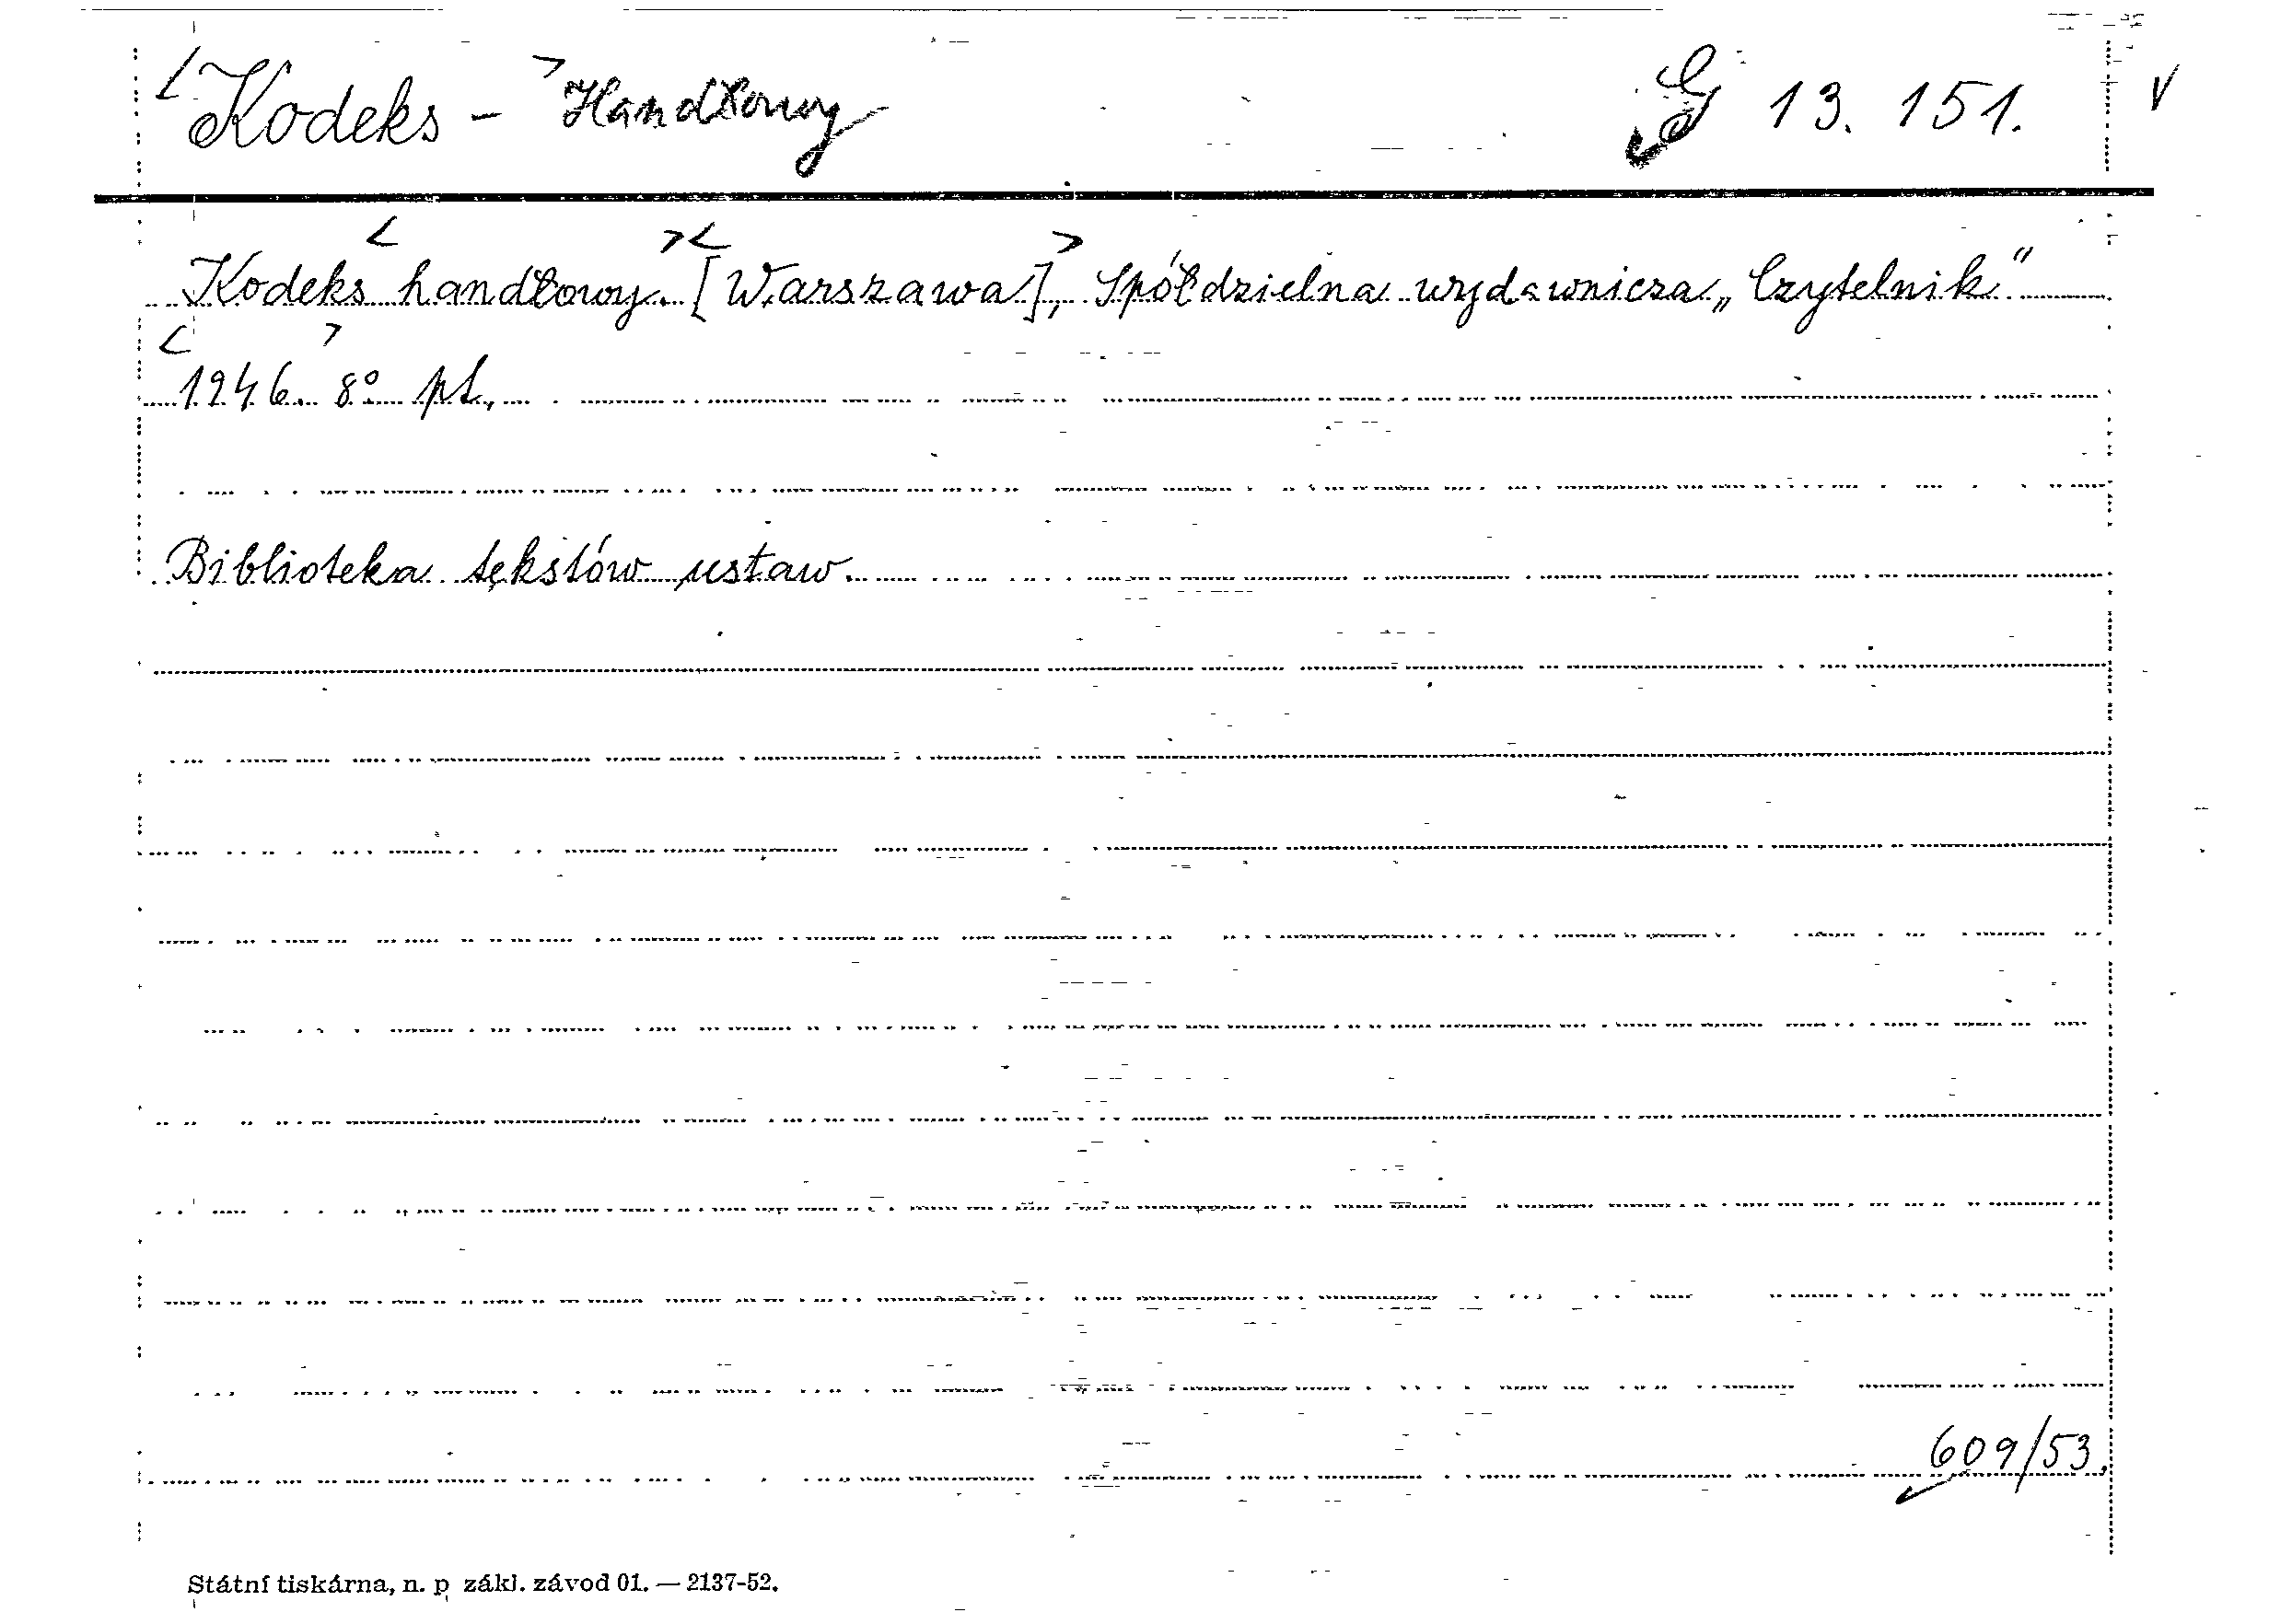 Kodeks - Handłowy G 13.151. V
Kodeks handłowy. [Warszawa], Spółdzielna wydawnicza „Czytelnik"
1946. 8° pł.,
Biblioteka tekstów ustaw.
609/53.
Státní tiskárna, n. p zákl. závod 01. — 2137-52.